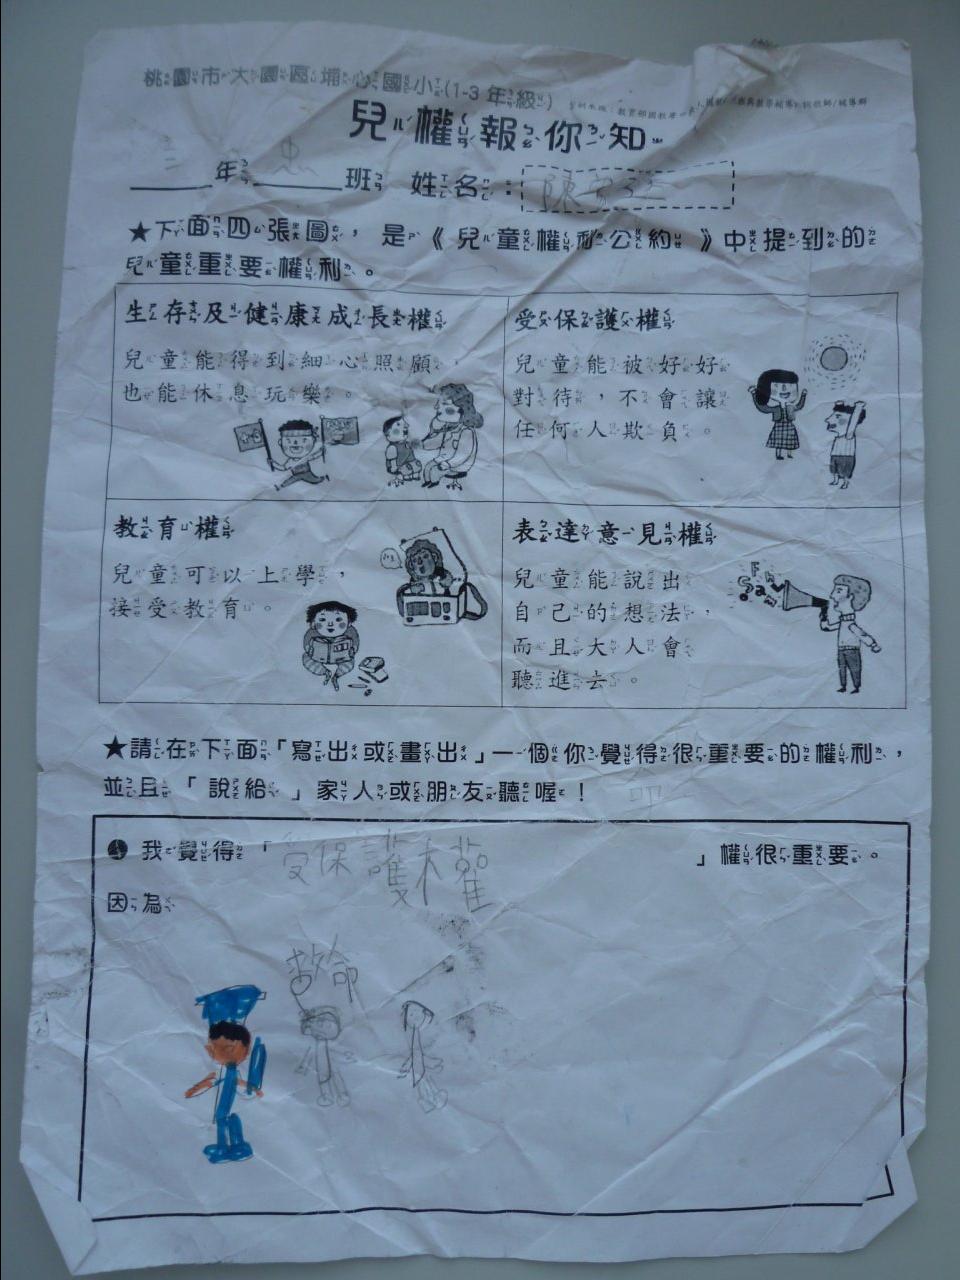 桃園市大園區埔心國小(1-3年級)
兒權報你知
三年忠班 姓名：陳
★下面四張圖，是《兒童權利公約》中提到的
兒童重要權利。
生存及健康成長權
兒童能得到細心照顧，
也能休息玩樂。
受保護權
兒童能被好好
對待，不會讓
任何人欺負。
教育權
兒童可以上學，
接受教育。
表達意見權
兒童能說出
自己的想法，
而且大人會
聽進去。
★請在下面「寫出或畫出」一個你覺得很重要的權利，
並且「說給」家人或朋友聽喔！
我覺得「受保護權」權很重要。
因為
救命